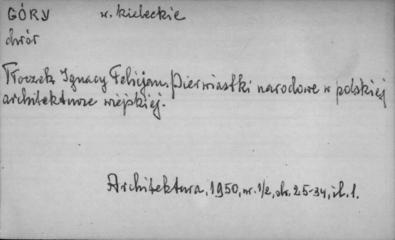 GÓRY w. kieleckie
dwór
Tłoczek Ignacy Felicjan. Pierwiastki narodowe w polskiej
architekturze wiejskiej.
Architektura, 1950, nr. 1/2, str. 25-34, il. 1.